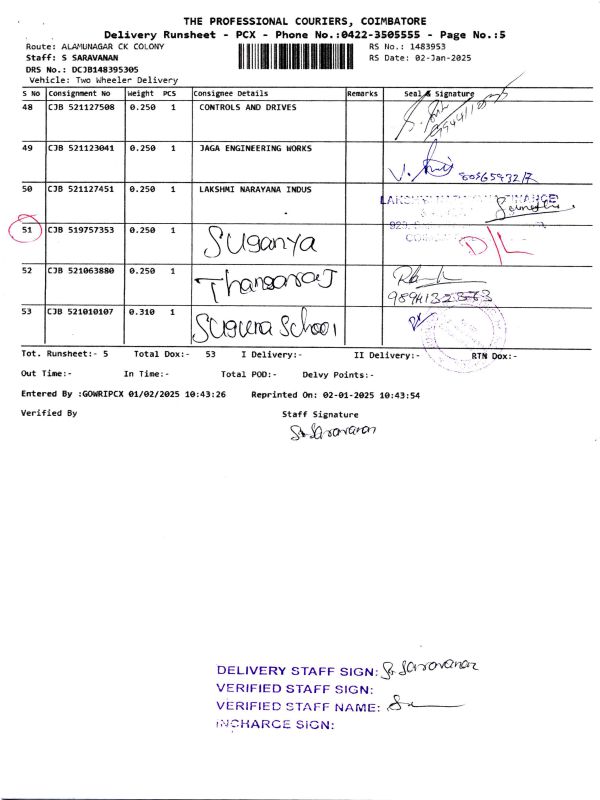 THE PROFESSIONAL COURIERS, COIMBATORE
Delivery Runsheet - PCX - Phone No.:0422-3505555 - Page No.:5
Route: ALAMUNAGAR CK COLONY RS No.: 1483953
Staff: S SARAVANAN RS Date: 02-Jan-2025
DRS No.: DCJB148395305
Vehicle: Two Wheeler Delivery
S No Consignment No Weight PCS Consignee Details Remarks Seal & Signature
48 CJB 521127508 0.250 1 CONTROLS AND DRIVES
49 CJB 521123041 0.250 1 JAGA ENGINEERING WORKS
50 CJB 521127451 0.250 1 LAKSHMI NARAYANA INDUS
51 CJB 519757353 0.250 1 Suganya D/L
52 CJB 521063880 0.250 1 Thangaraj
53 CJB 521010107 0.310 1 Suguna School
Tot. Runsheet:- 5 Total Dox:- 53 I Delivery:- II Delivery:- RTN Dox:-
Out Time:- In Time:- Total POD:- Delvy Points:-
Entered By :GOWRIPCX 01/02/2025 10:43:26 Reprinted On: 02-01-2025 10:43:54
Verified By Staff Signature
S. Saravanan
DELIVERY STAFF SIGN: S. Saravanan
VERIFIED STAFF SIGN:
VERIFIED STAFF NAME:
INCHARGE SIGN: